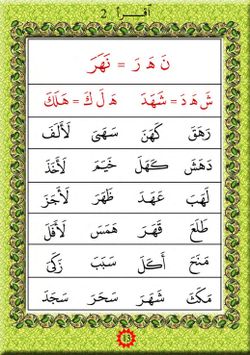 أقرأ 2
نَ هَ رَ = نَهَرَ
شَ هَ دَ = شَهَدَ هَ لَ كَ = هَلَكَ
رَهَقَ كَهَنَ سَهَىَ لَأَلَفَ
دَهَشَ كَهَلَ خَيَمَ لَأَخَذَ
لَهَبَ عَهَدَ ظَهَرَ لَأَجَزَ
طَلَعَ قَهَرَ هَمَسَ لَأَفَلَ
مَنَحَ أَكَلَ سَبَبَ زَكَىَ
مَكَكَ شَهَرَ سَحَرَ سَجَدَ
13